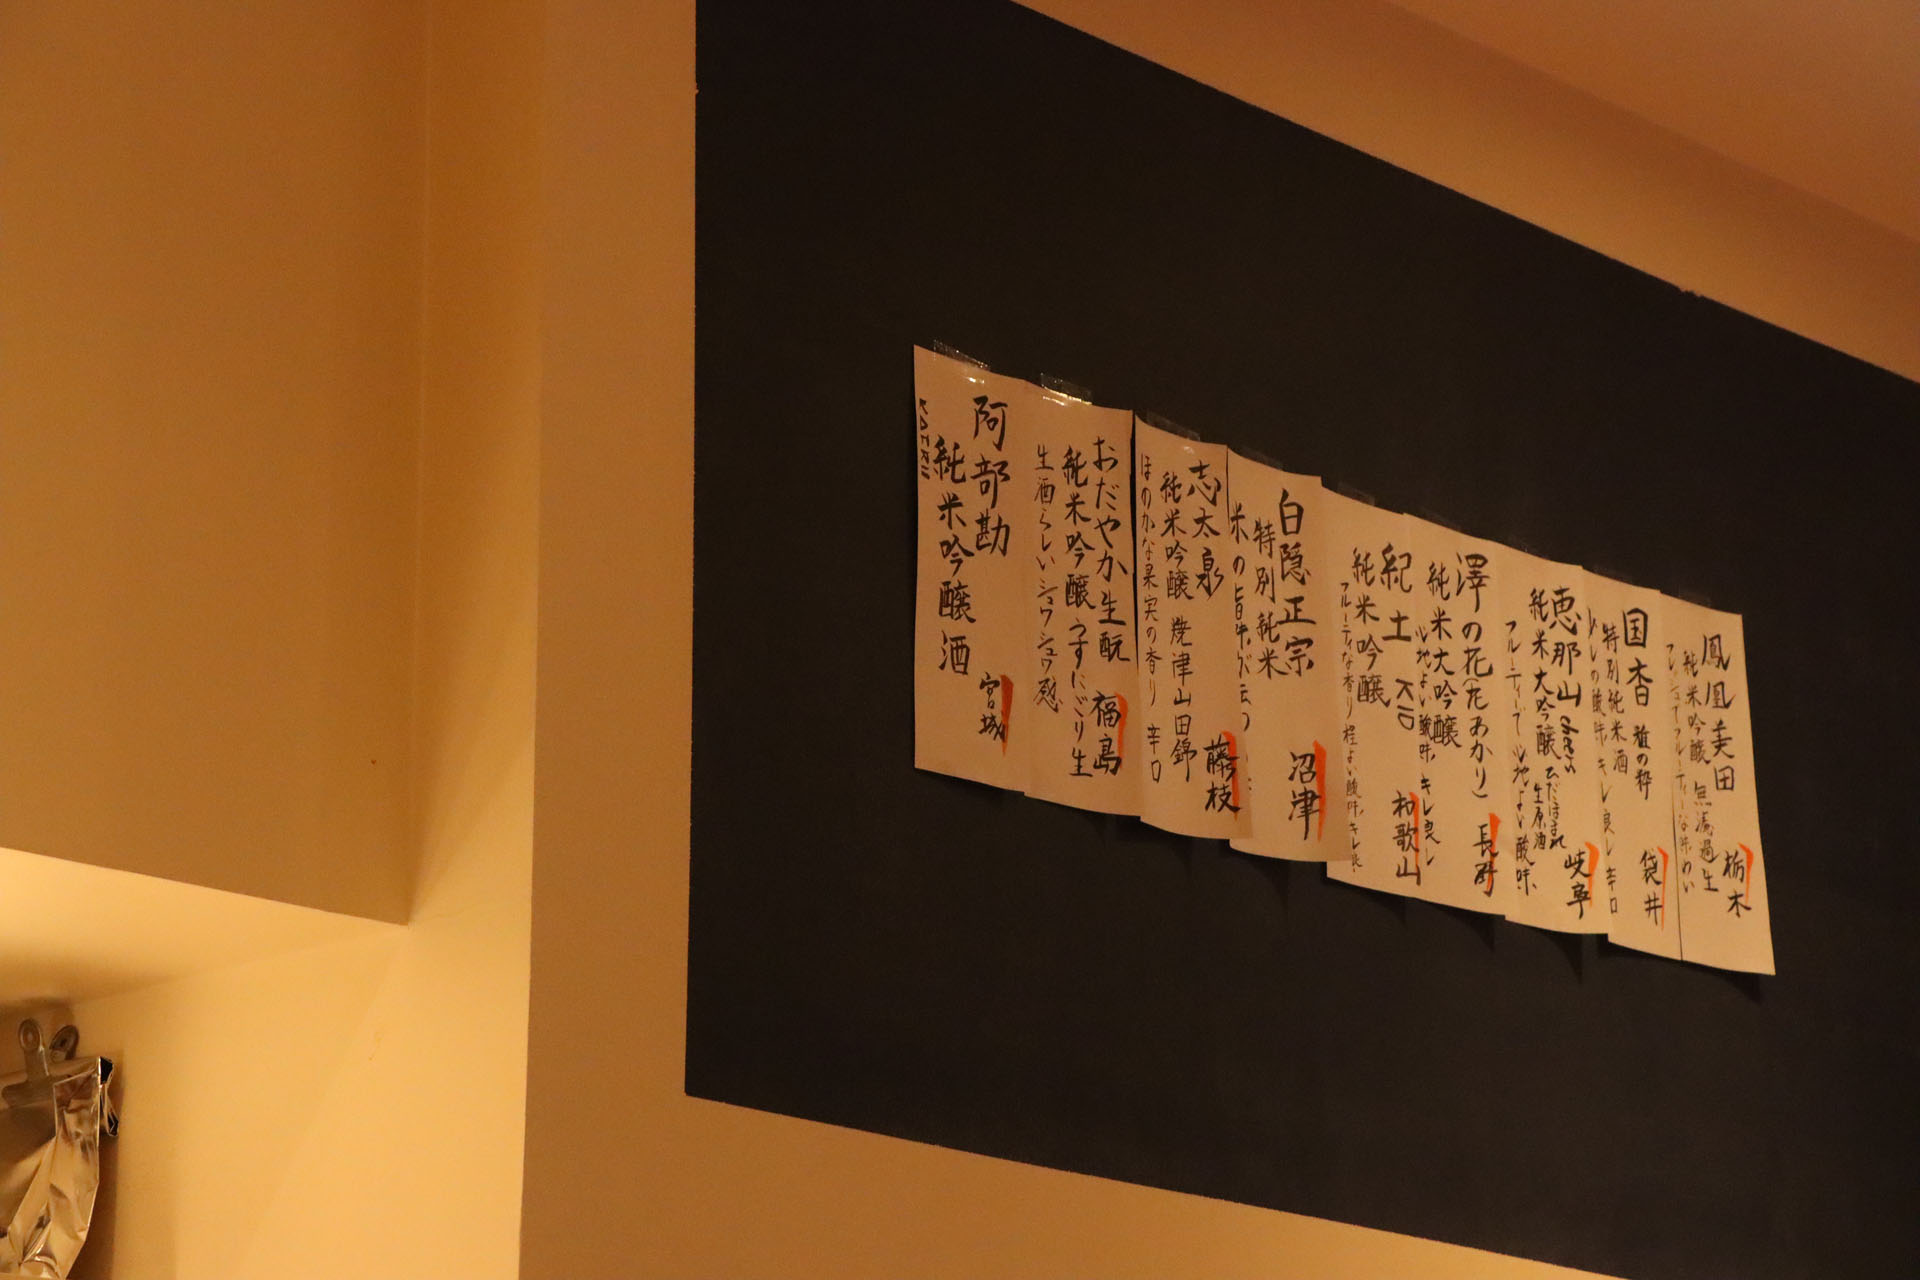 鳳凰美田
純米吟醸 無濾過生
フレッシュでフルーティーな味わい
栃木
国香
特別純米酒
袋井
恵那山
純米大吟醸 ひだほまれ
生原酒
フルーティーで心地よい酸味
岐阜
澤の花(花あかり)
純米大吟醸
心地よい酸味、キレ良し
長野
紀土 KID
純米吟醸
フルーティな香り 程よい酸味、キレ良
和歌山
白隠正宗
特別純米
沼津
志太泉
純米吟醸 焼津山田錦
ほのかな果実の香り 辛口
藤枝
おだやか生酛
純米吟醸 うすにごり生
生酒らしいシュワシュワ感
福島
阿部勘
純米吟醸酒
宮城